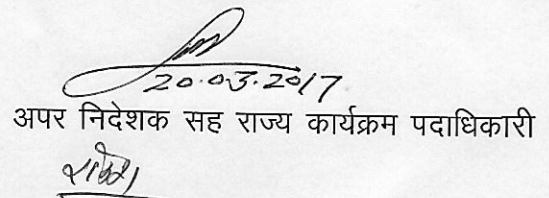 20.03.2017
अपर निदेशक सह राज्य कार्यक्रम पदाधिकारी